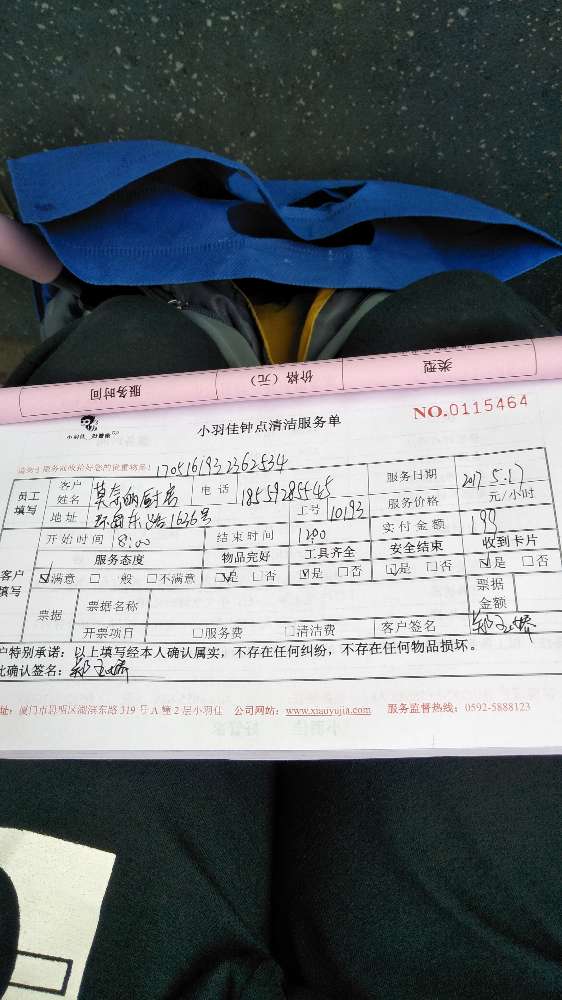 服务时间 价格（元） 类型
小羽佳
小羽佳钟点清洁服务单
NO.0115464
1705161932362534
员工填写 客户姓名 莫奈的厨房 电话 18559285545 服务日期 2017 5.17
地址 环岛东路1636号 工号 10193 服务价格 元/小时
客户填写 开始时间 8:00 结束时间 12:00 实付金额 199
服务态度 物品完好 工具齐全 安全结束 收到卡片
☑满意 □一般 □不满意 ☑是 □否 ☑是 □否 ☑是 □否 ☑是 □否
票据 票据名称 票据金额
开票项目 □服务费 □清洁费 客户签名
户特别承诺：以上填写经本人确认属实，不存在任何纠纷，不存在任何物品损坏。
此确认签名：
址：厦门市思明区湖滨东路319号A幢2层小羽佳 公司网站：www.xiaoyujia.com 服务监督热线：0592-5888123